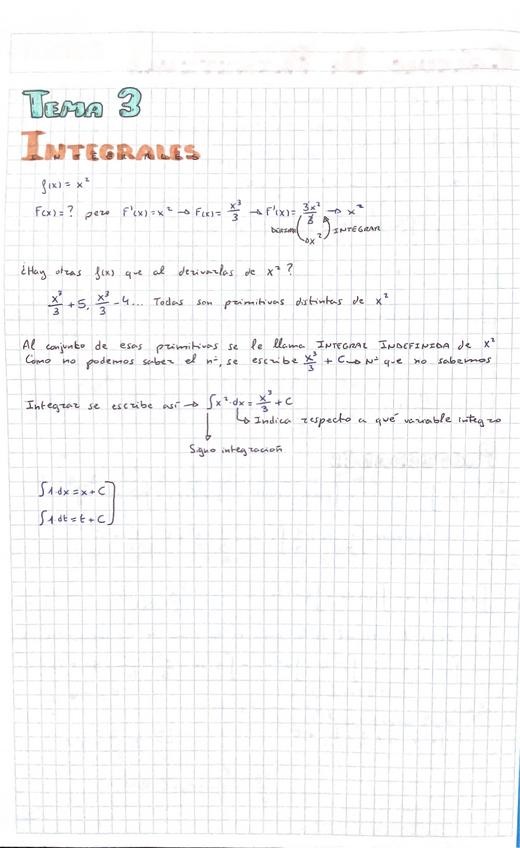 TEMA 3
INTEGRALES
f(x) = x²
F(x) = ? pero F'(x) = x² → F(x) = x³/3 → F'(x) = 3x²/3 → x²
DERIVAR ( x² ) INTEGRAR
¿Hay otras f(x) que al derivarlas de x²?
x³/3 + 5, x³/3 - 4... Todas son primitivas distintas de x²
Al conjunto de esas primitivas se le llama INTEGRAL INDEFINIDA de x²
Como no podemos saber el nº, se escribe x³/3 + C → Nº que no sabemos
Integrar se escribe así → ∫x²·dx = x³/3 + C
↳ Indica respecto a qué variable integro
Signo integración
∫1 dx = x + C
∫1 dt = t + C